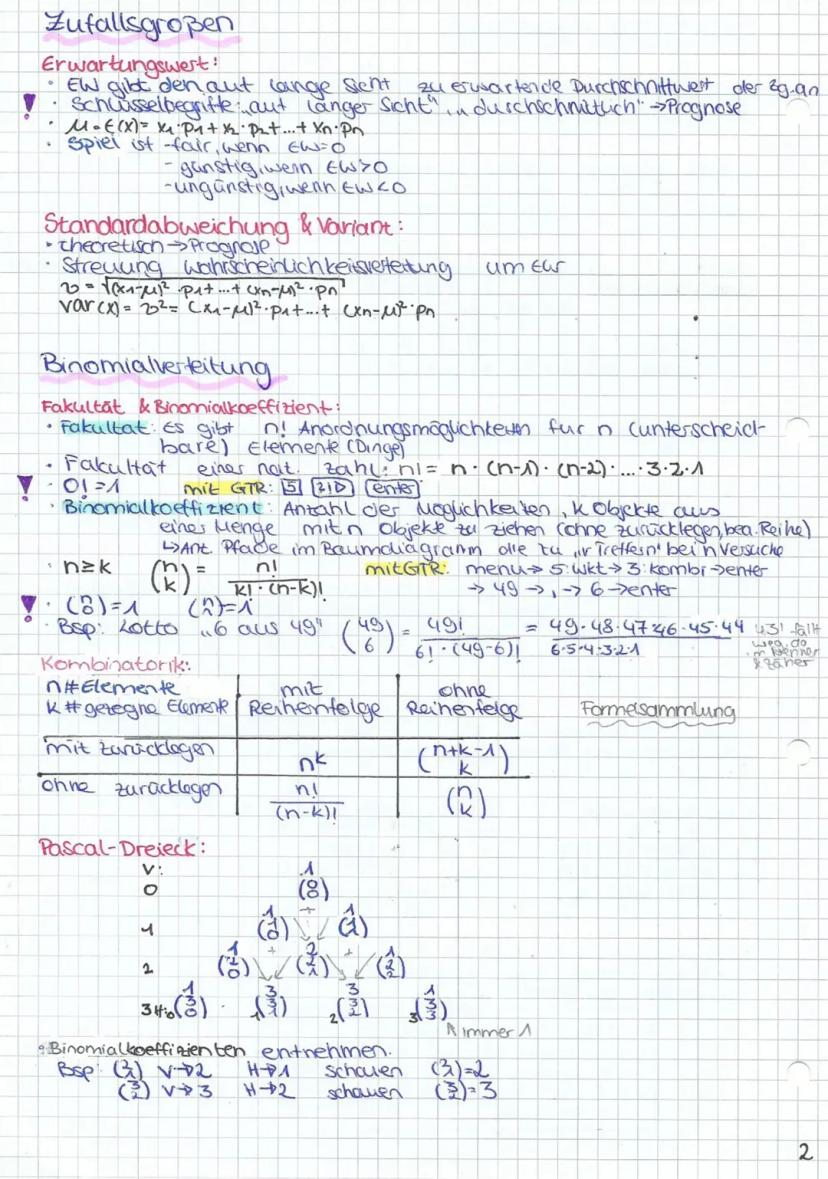 Zufallsgroßen
Erwartungswert:
• EW gibt den auf lange Sicht zu erwartende Durchschnittwert der Zg. an
! • Schlüsselbegriffe: „auf langer Sicht", „durchschnittlich" → Prognose
• μ = E(X) = x₁·p₁ + x₂·p₂ + ... + xn·pn
• Spiel ist - fair, wenn EW=0
- günstig, wenn EW>0
- ungünstig, wenn EW<0
Standardabweichung & Variant:
• theoretisch → Prognose
• Streuung Wahrscheinlichkeitsverteitung um EW
σ = √(x₁-μ)²·p₁+...+(xn-μ)²·pn
Var(X) = σ² = (x₁-μ)²·p₁+...+(xn-μ)²·pn
Binomialverteitung
Fakultät & Binomialkoeffizient:
• Fakultät: Es gibt n! Anordnungsmöglichkeiten für n (unterscheid-
bare) Elemente (Dinge)
• Fakultät einer nat. Zahl: n! = n·(n-1)·(n-2)·...·3·2·1
! • 0! = 1 mit GTR: 5 ?!▷ enter
• Binomialkoeffizient: Anzahl der Möglichkeiten, k Objekte aus
einer Menge mit n Objekte zu ziehen (ohne zurücklegen, bea. Reihe)
↳ Ant. Pfade im Baumdiagramm die zu „r Treffern" bei n Versuche
• n≥k (n k) = n! / k!·(n-k)! mit GTR: menu → 5: wkt → 3: kombi → enter
→ 49 → , → 6 → enter
! • (n 0) = 1 (n n) = 1
• Bsp: Lotto „6 aus 49" (49 6) = 49! / 6!·(49-6)! = 49·48·47·46·45·44 / 6·5·4·3·2·1 43! fällt
weg, da
im Nenner
& Zähler
Kombinatorik:
n # Elemente mit ohne
k # gezogne Elemente Reihenfolge Reihenfolge Formelsammlung
mit zurücklegen nᵏ (n+k-1 k)
ohne zurücklegen n! / (n-k)! (n k)
Pascal-Dreieck:
V:
0 1 (0 0)
1 1 (1 0) + 1 (1 1)
2 1 (2 0) + 2 (2 1) + 1 (2 2)
3 H:0 1 (3 0) 1 3 (3 1) 2 3 (3 2) 3 1 (3 3)
↖ immer 1
• Binomialkoeffizienten entnehmen.
Bsp: (2 1) V→2 H→1 schauen (2 1)=2
(3 2) V→3 H→2 schauen (3 2)=3
2